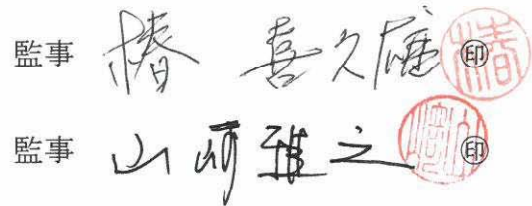 監事 椿 喜久雄 ㊞
監事 山﨑雅之 ㊞